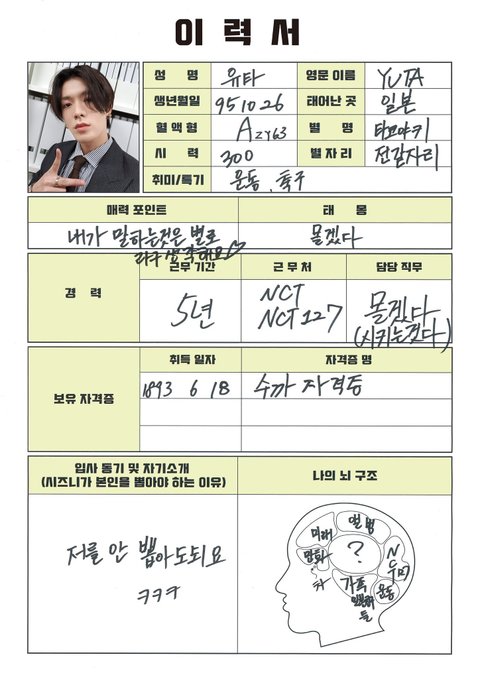 이 력 서
성 명 유타 영문 이름 YUTA
생년월일 951026 태어난 곳 일본
혈액형 A 별 명 타코야키
시 력 300 별자리 전갈자리
취미/특기 운동, 축구
매력 포인트 태 몽
내가 말하는것은 별로 몰겠다
라구 생각해요♡
경 력 근무 기간 근 무 처 담당 직무
5년 NCT 몰겠다
NCT 127 (시키는것다)
보유 자격증 취득 일자 자격증 명
1893 6 18 수까 자격등
입사 동기 및 자기소개
(시즈니가 본인을 뽑아야 하는 이유)
나의 뇌 구조
저를 안 뽑아도되요
ㅋㅋㅋ
미래 앨범
만화 ? NCT
차 가족 운동
들